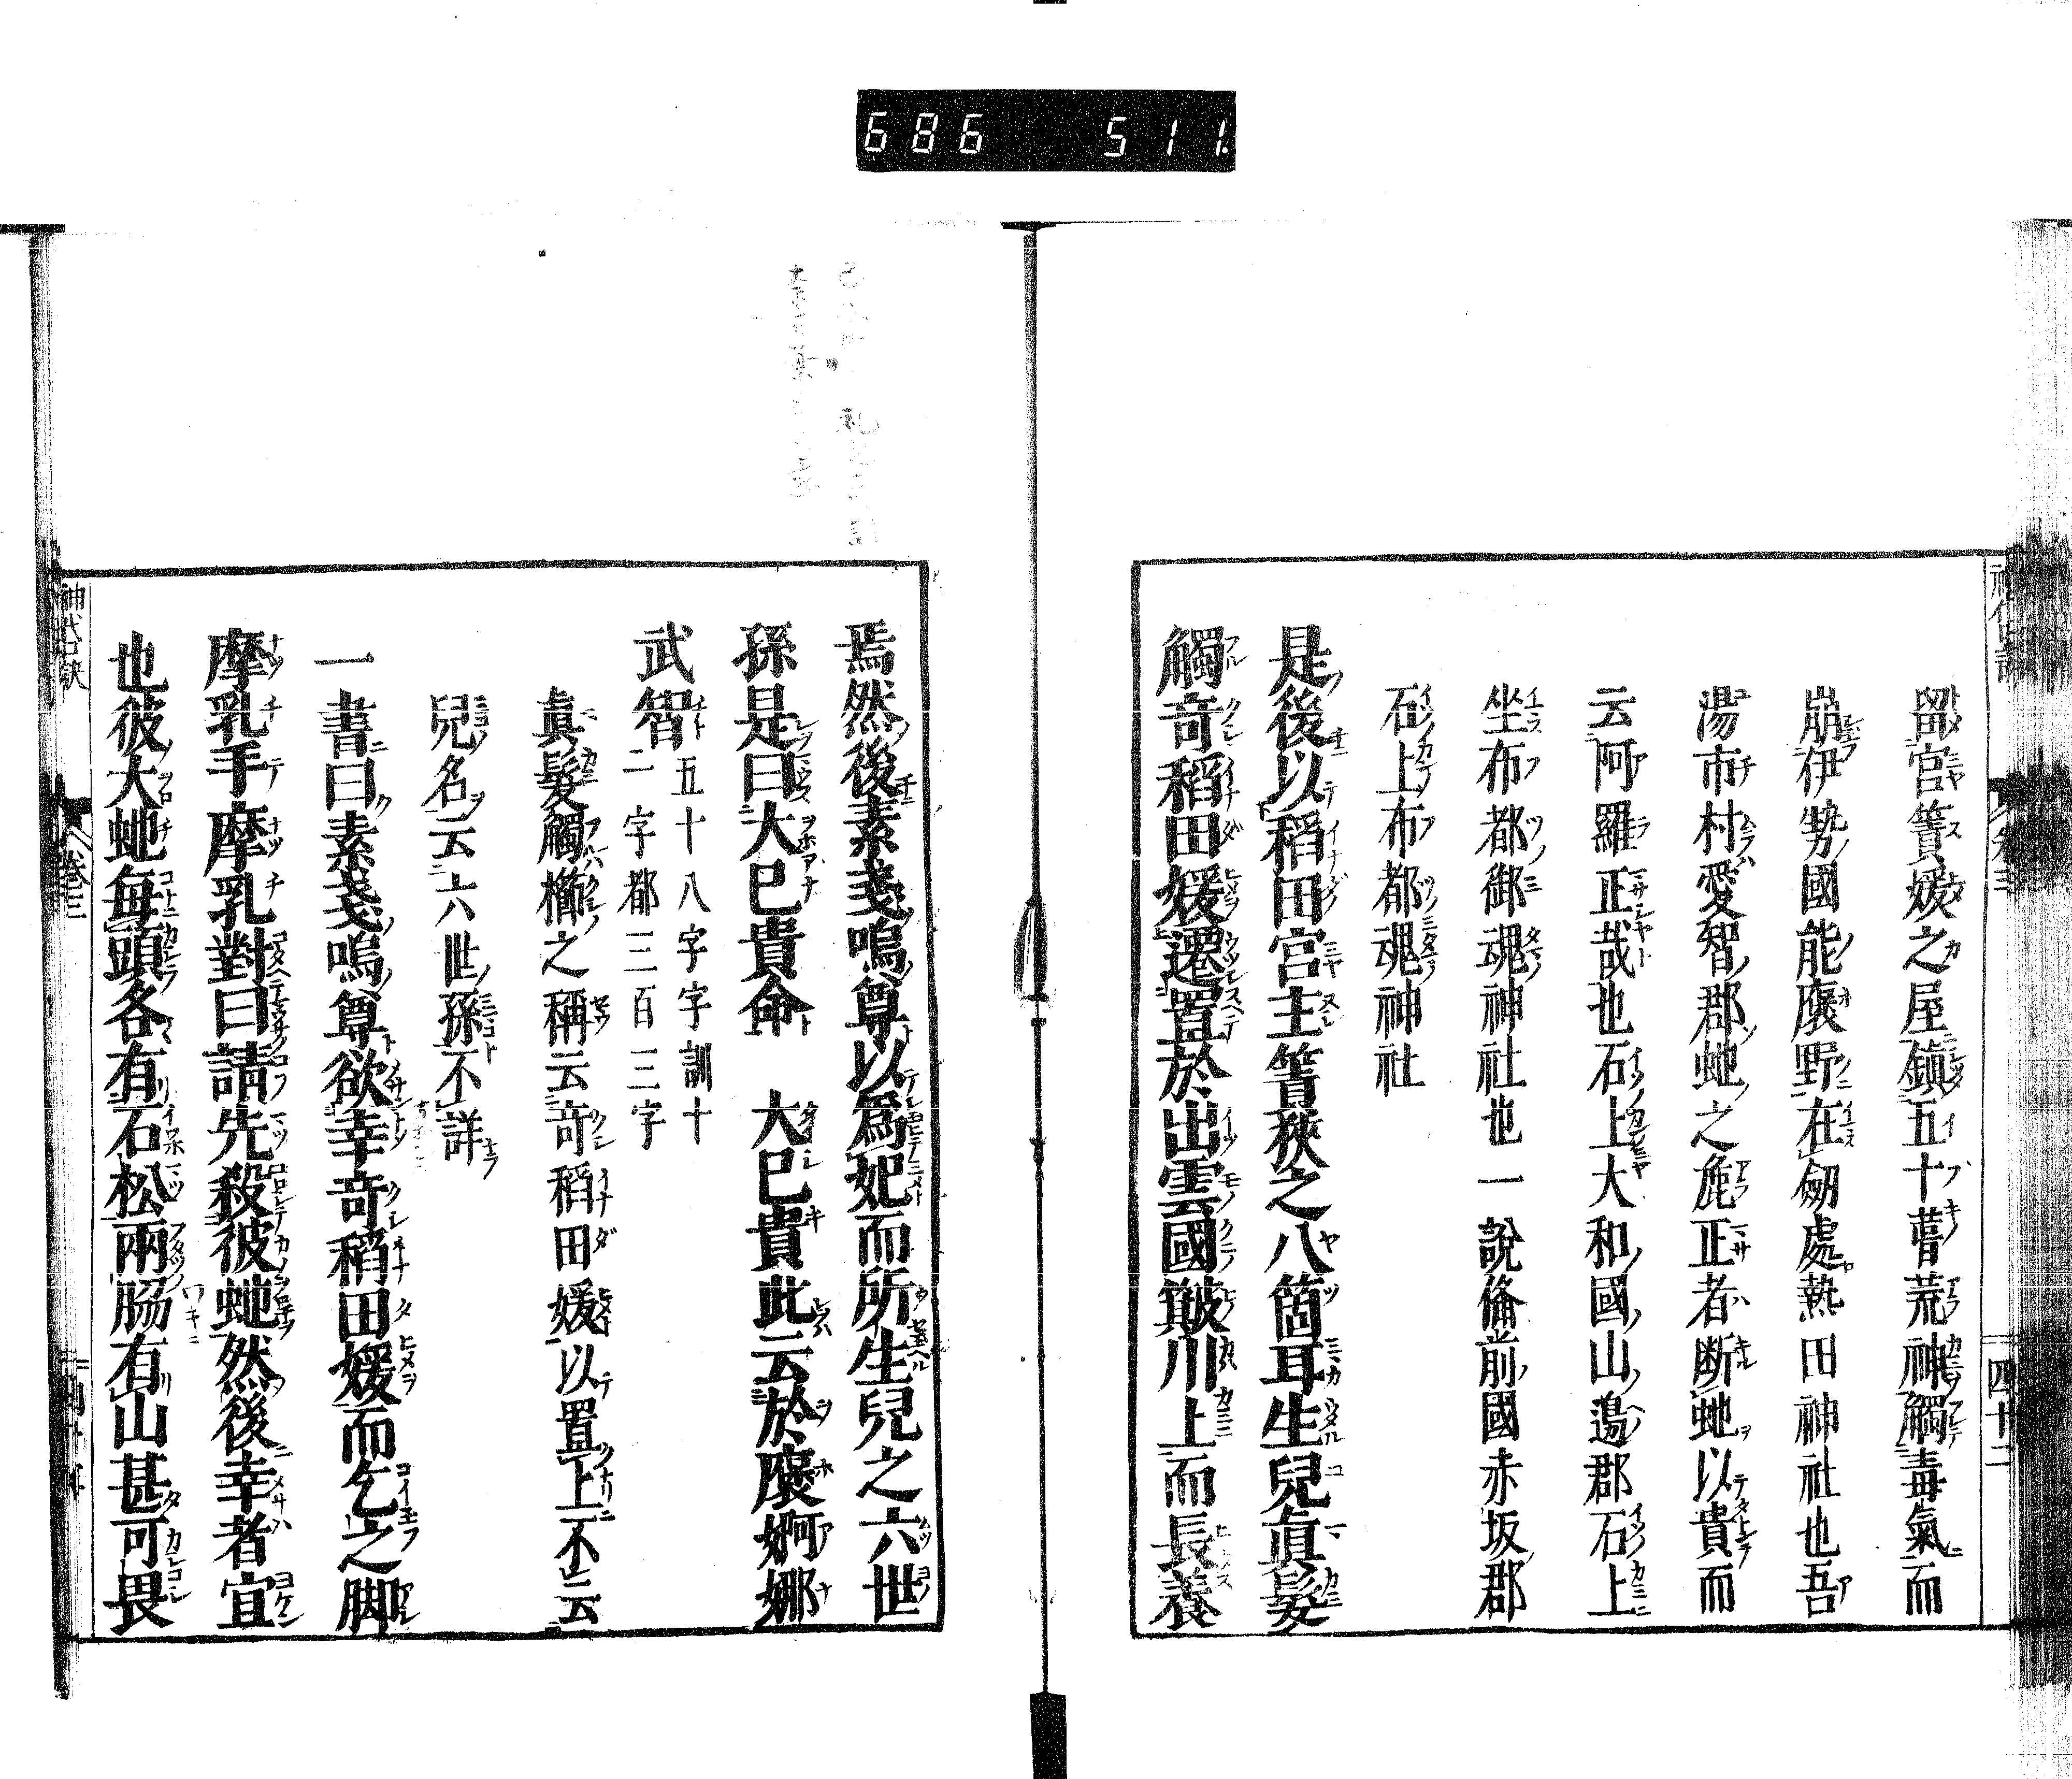 686 511
四十二
留宮簀媛之屋鎮五十葺荒神觸毒氣而
崩伊勢國能褒野在劔處熱田神社也吾
湯市村愛智郡虵之麁正者断虵以貴而
云阿羅正哉也石上大和國山邊郡石上
坐布都御魂神社也一說俻前國赤坂郡
石上布都魂神社
是後以稻田宮主簀狹之八箇耳生兒眞髮
觸奇稻田媛遷置於出雲國簸川上而長養
焉然後素戔嗚尊以爲妃而所生兒之六世
孫是曰大已貴命 大已貴此云於褒婀娜
武智 五十八字字訓十
二字都三百三字
眞髮觸櫛之稱云奇稻田媛以置上不云
兒名云六世孫不詳
一書曰素戔嗚尊欲幸奇稻田媛而乞之脚
摩乳手摩乳對曰請先殺彼虵然後幸者宜
也彼大虵每頭各有石松兩膓有山甚可畏
神代口訣
卷三